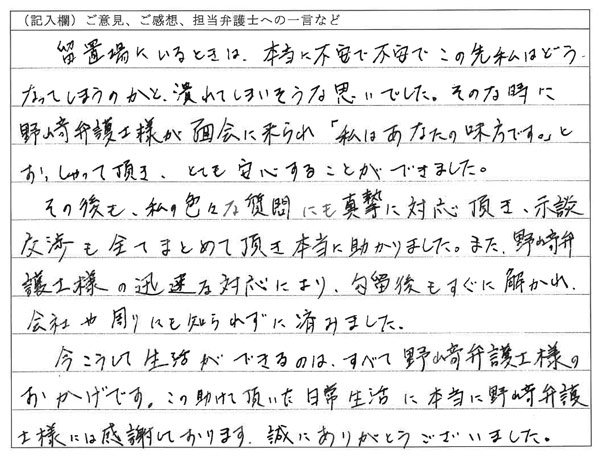 （記入欄）ご意見、ご感想、担当弁護士への一言など
留置場にいるときは、本当に不安で不安でこの先私はどう
なってしまうのかと、潰れてしまいそうな思いでした。そのな時に
野﨑弁護士様が面会に来られ「私はあなたの味方です。」と
おっしゃって頂き、とても安心することができました。
その後も、私の色々な質問にも真摯に対応頂き、示談
交渉も全てまとめて頂き本当に助かりました。また、野﨑弁
護士様の迅速な対応により、勾留後もすぐに解かれ、
会社や周りにも知られずに済みました。
今こうして生活ができるのは、すべて野﨑弁護士様の
おかげです。この助けて頂いた日常生活に本当に野﨑弁護
士様には感謝しております。誠にありがとうございました。